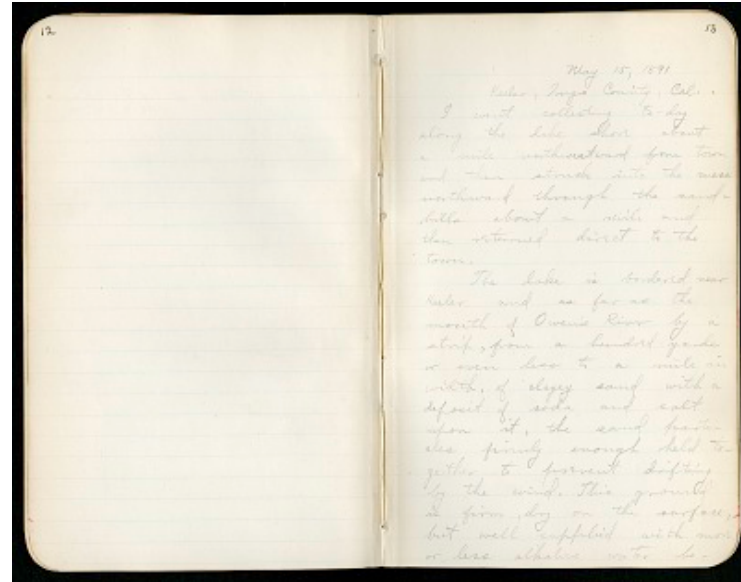 12
53
May 15, 1891
Keeler, Inyo County, Cal.
I went collecting to-day
along the lake shore about
a mile northwestward from town
and then struck into the mesa
northward through the sand-
hills about a mile and
then returned direct to the
town.
The lake is bordered near
Keeler and as far as the
mouth of Owens River by a
strip, from a hundred yards
or even less to a mile in
width, of clayey sand with a
deposit of soda and salt
upon it, the sand parti-
cles firmly enough held to-
gether to prevent drifting
by the wind. This ground
is firm, dry on the surface,
but well supplied with more
or less alkaline water be-